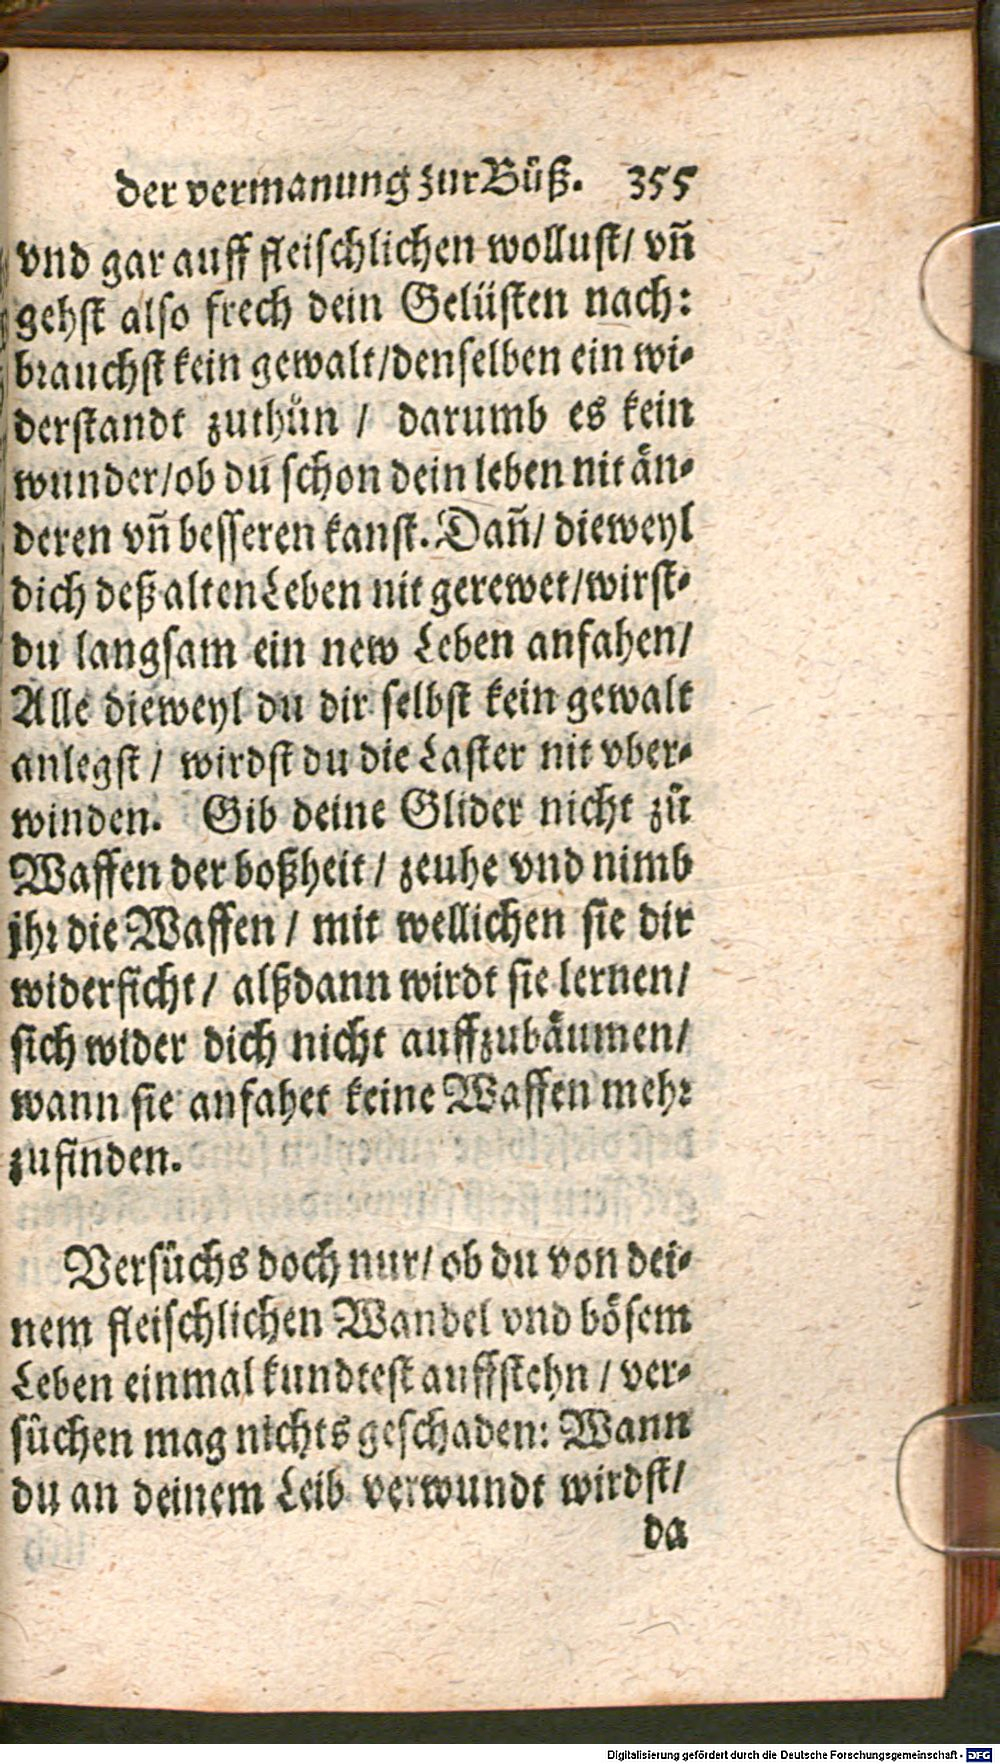 der vermanung zur Bůß. 355
vnd gar auff fleischlichen wollust/ vñ
gehst also frech dein Gelüsten nach:
brauchst kein gewalt/denselben ein wi-
derstandt zuthůn / darumb es kein
wunder/ob du schon dein leben nit än-
deren vñ besseren kanst. Dañ/ dieweyl
dich deß alten Leben nit gerewet/wirst-
du langsam ein new Leben anfahen/
Alle dieweyl du dir selbst kein gewalt
anlegst / wirdst du die Laster nit vber-
winden. Gib deine Glider nicht zů
Waffen der boßheit / zeuhe vnd nimb
jhr die Waffen / mit wellichen sie dir
widerficht / alßdann wirdt sie lernen/
sich wider dich nicht auffzubäumen/
wann sie anfahet keine Waffen mehr
zufinden.
Versůchs doch nur/ ob du von dei-
nem fleischlichen Wandel vnd bösem
Leben einmal kundtest auffstehn / ver-
sůchen mag nichts geschaden: Wann
du an deinem Leib verwundt wirdst/
da
Digitalisierung gefördert durch die Deutsche Forschungsgemeinschaft - DFG